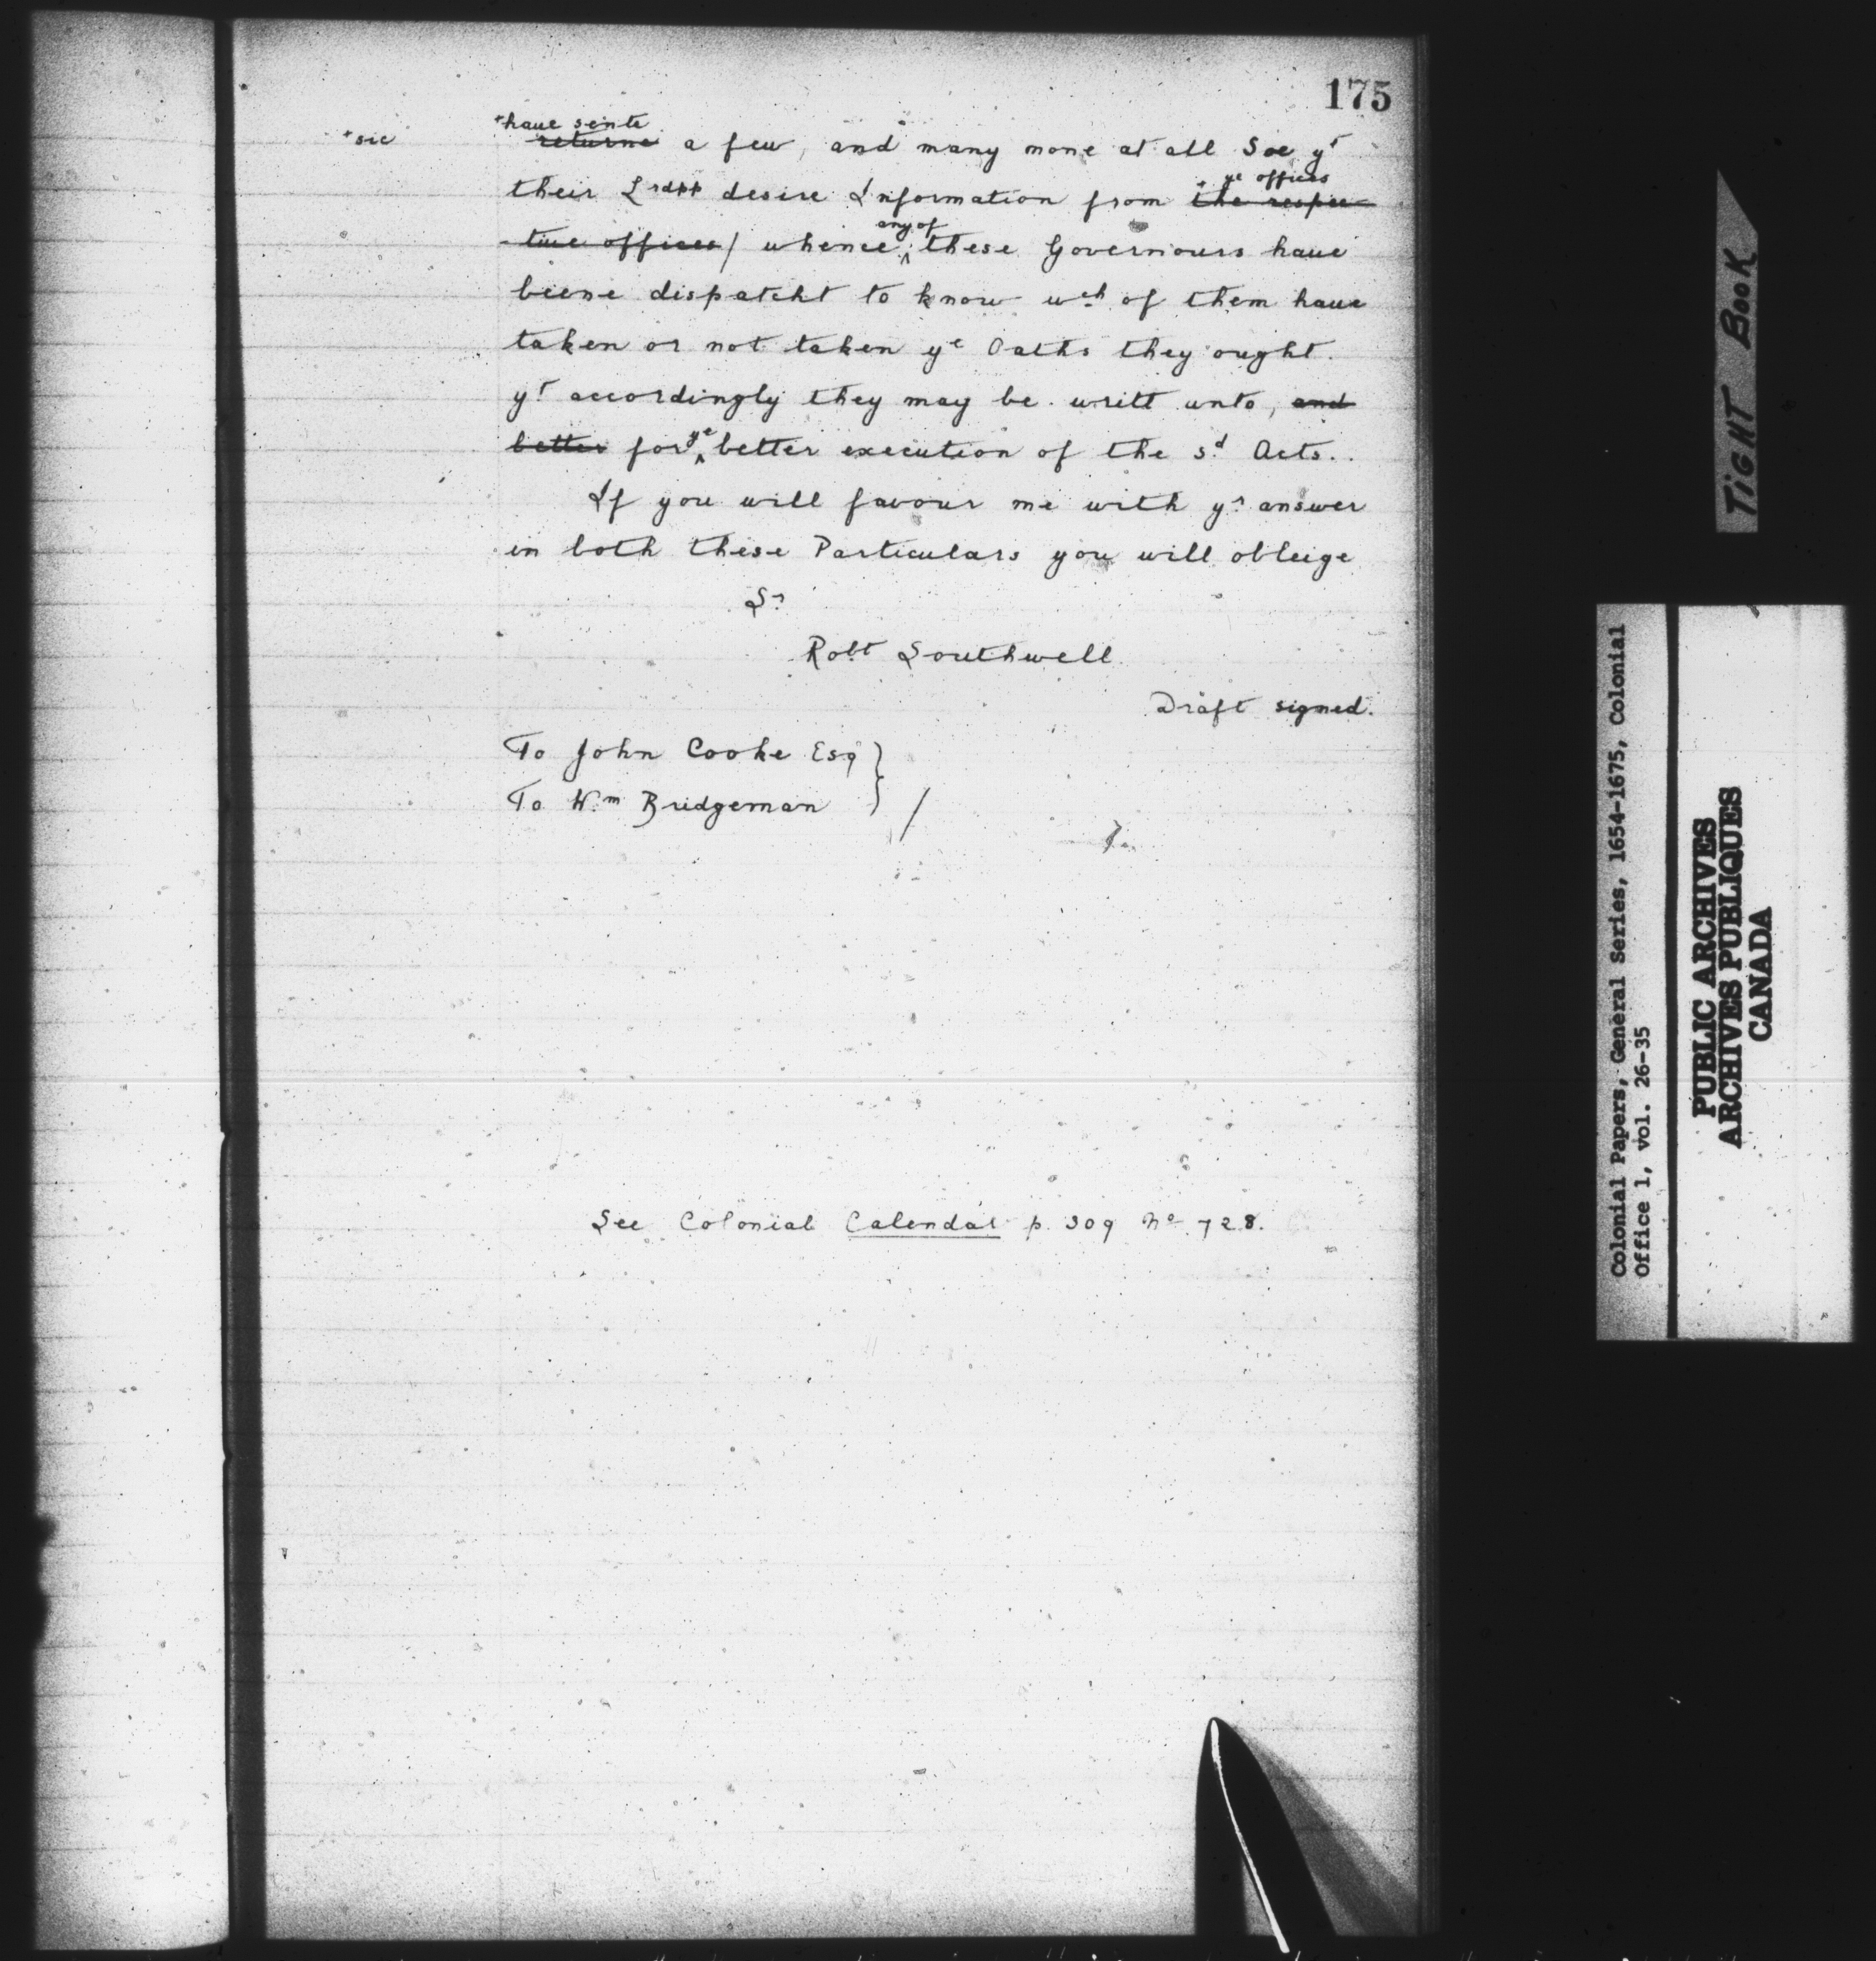 175
*sic
*have sente
returne a few, and many none at all Soe yt
their Lrdpp desire Information from the respec-
* ye offices
tive offices/ whence any of these Governours have
beene dispatcht to know wch of them have
taken or not taken ye Oaths they ought.
yt accordingly they may be writt unto, and
better for ye better execution of the sd Acts..
If you will favour me with yr answer
in both these Particulars you will obleige
Sr
Robt Southwell.
Draft signed.
To John Cooke Esq }
To Wm Bridgeman } /
See Colonial Calendar p. 309 No 728.
TIGHT BOOK
Colonial Papers, General Series, 1654-1675, Colonial
Office 1, vol. 26-35
PUBLIC ARCHIVES
ARCHIVES PUBLIQUES
CANADA